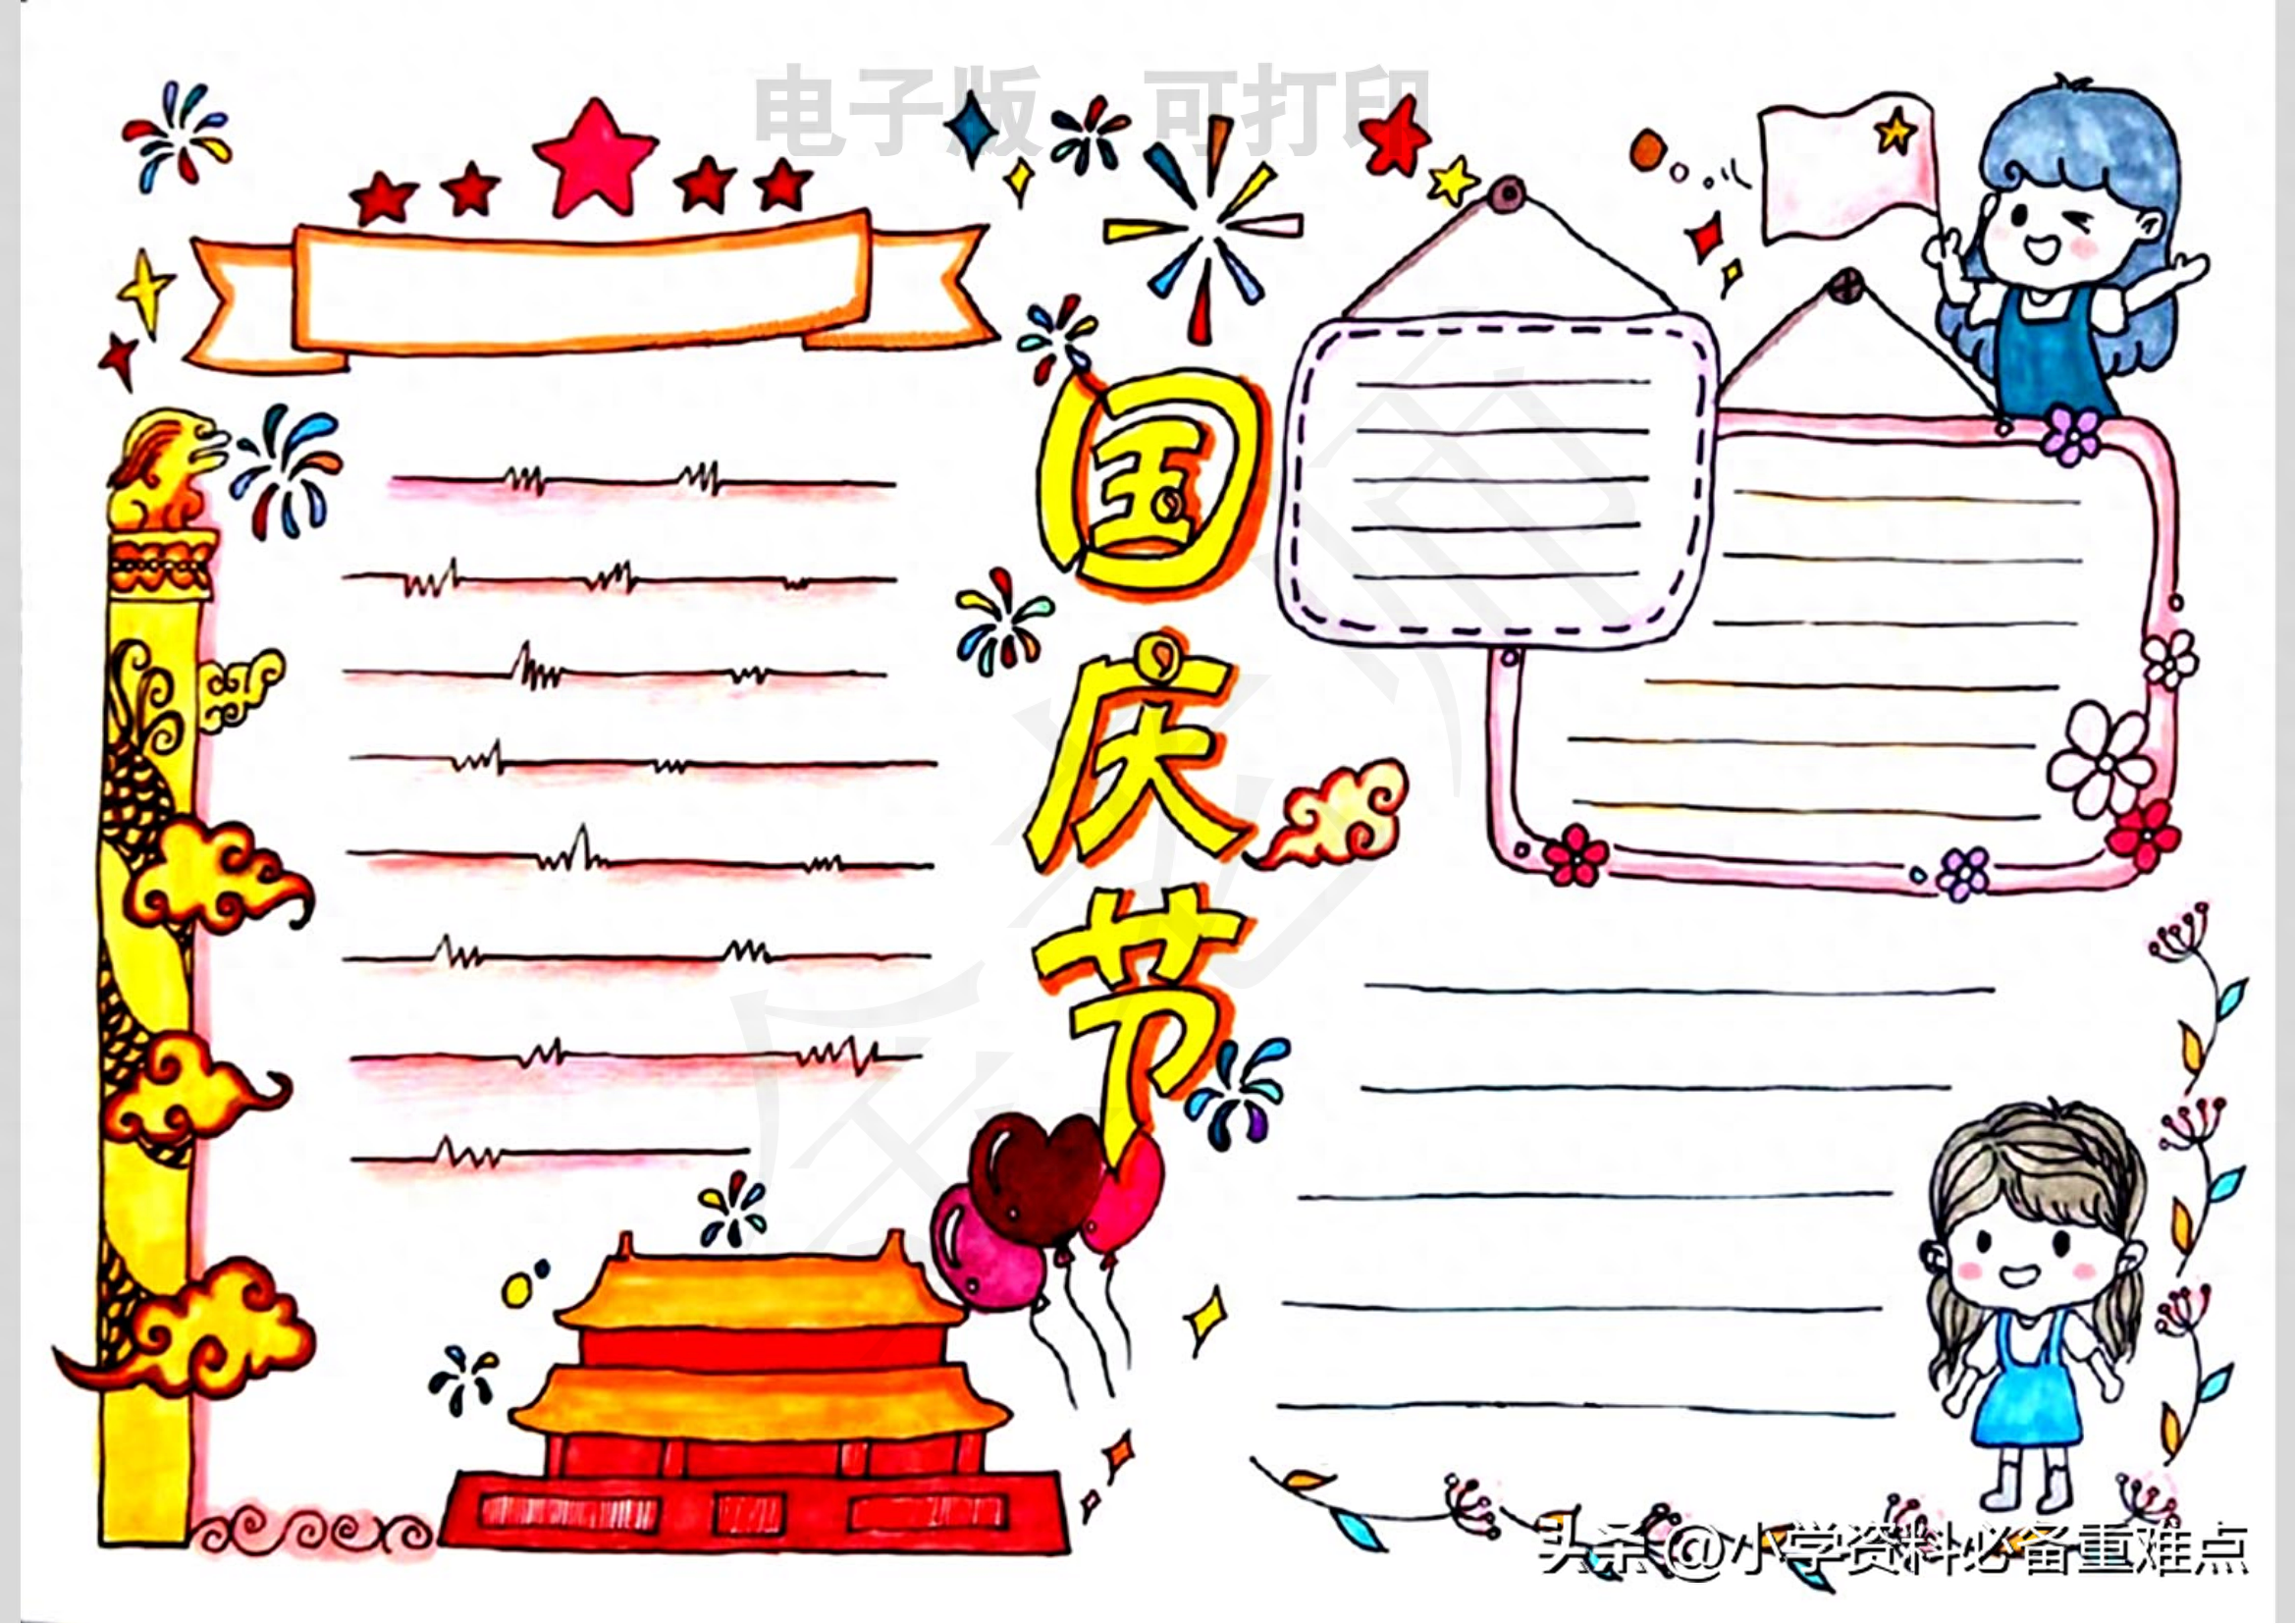 电子版 可打印
国
庆
节
头条@小学资料必备重难点